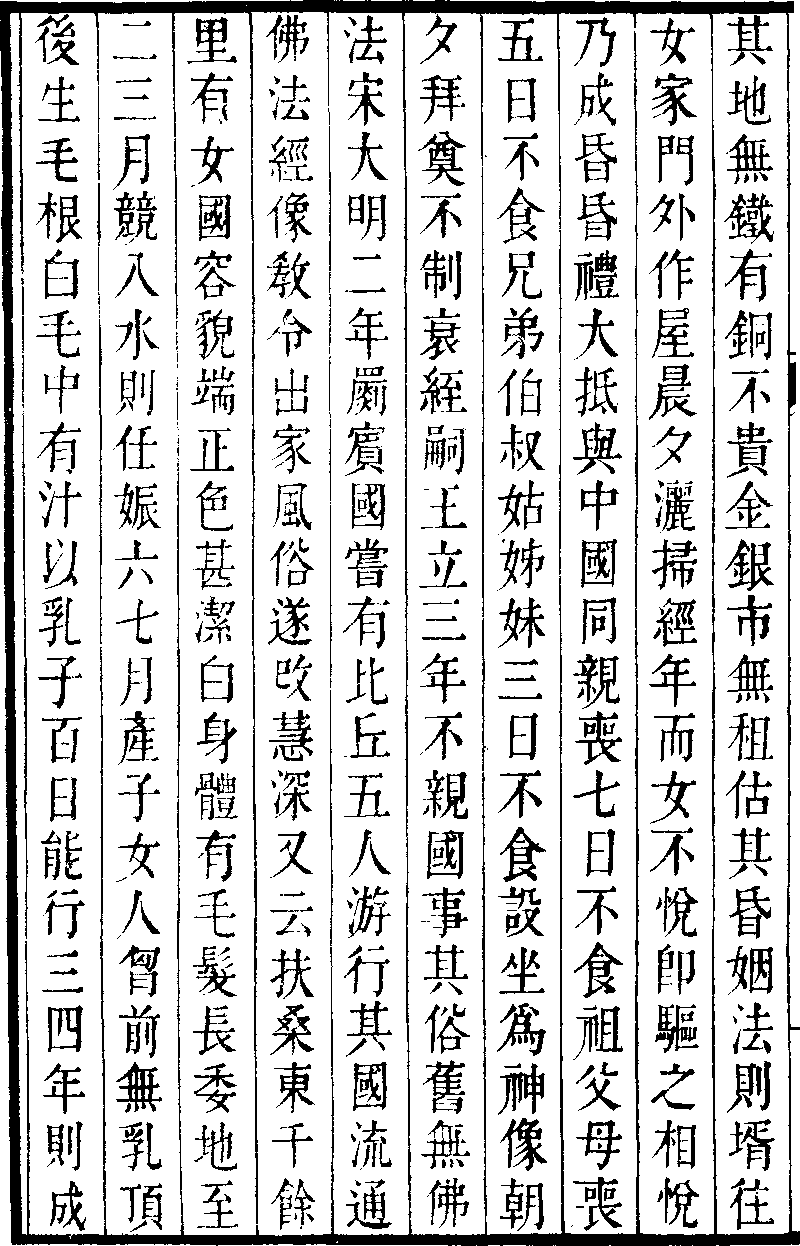 其地無鐵有銅不貴金銀市無租估其昏姻法則壻往
女家門外作屋晨夕灑掃經年而女不悅卽驅之相悅
乃成昏昏禮大抵與中國同親喪七日不食祖父母喪
五日不食兄弟伯叔姑姊妹三日不食設坐爲神像朝
夕拜奠不制衰絰嗣王立三年不親國事其俗舊無佛
法宋大明二年罽賓國嘗有比丘五人游行其國流通
佛法經像敎令出家風俗遂改慧深又云扶桑東千餘
里有女國容貌端正色甚潔白身體有毛髮長委地至
二三月競入水則任娠六七月產子女人胷前無乳項
後生毛根白毛中有汁以乳子百日能行三四年則成